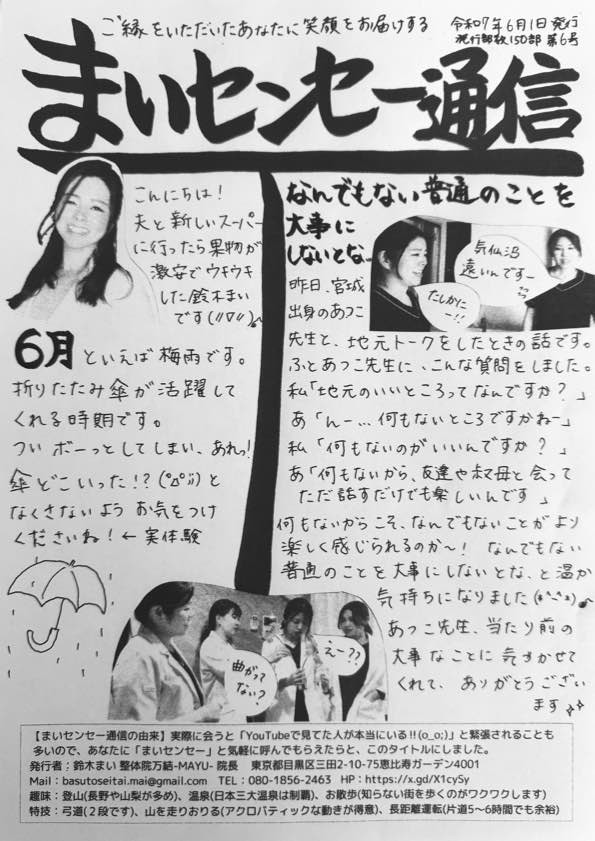 ご縁をいただいたあなたに笑顔をお届けする
令和7年6月1日発行
発行部数150部 第6号
まいセンセー通信
こんにちは！
夫と新しいスーパー
に行ったら果物が
激安でウキウキ
した鈴木まい
です(〃▽〃)
6月といえば梅雨です。
折りたたみ傘が活躍して
くれる時期です。
ついボーっとしてしまい、あれっ!
傘どこいった!?(°Д°;;)と
なくさないようお気をつけ
くださいね！←実体験
なんでもない普通のことを
大事に
しないとな〜
気仙沼
遠いんですー
たしかに
ー!!
昨日、宮城
出身のあつこ
先生と、地元トークをしたときの話です。
ふとあつこ先生に、こんな質問をしました。
私「地元のいいところってなんですか？」
あ「んー…何もないところですかねー」
私「何もないのがいいんですか？」
あ「何もないから、友達や叔母と会って
ただ話すだけでも楽しいんです」
何もないからこそ、なんでもないことがより
楽しく感じられるのか〜！ なんでもない
普通のことを大事にしないとな、と温か
気持ちになりました(*^-^*)
あつこ先生、当たり前の
大事なことに気づかせて
くれて、ありがとうござい
ます
曲がって
ない?
えー??
【まいセンセー通信の由来】実際に会うと「YouTubeで見てた人が本当にいる!!(o_o;)」と緊張されることも
多いので、あなたに「まいセンセー」と気軽に呼んでもらえたらと、このタイトルにしました。
発行者：鈴木まい 整体院万結-MAYU- 院長 東京都目黒区三田2-10-75恵比寿ガーデン4001
Mail：basutoseitai.mai@gmail.com TEL：080-1856-2463 HP：https://x.gd/X1cySy
趣味：登山(長野や山梨が多め)、温泉(日本三大温泉は制覇)、お散歩(知らない街を歩くのがワクワクします)
特技：弓道(２段です)、山を走りおりる(アクロバティックな動きが得意)、長距離運転(片道5〜6時間でも余裕)